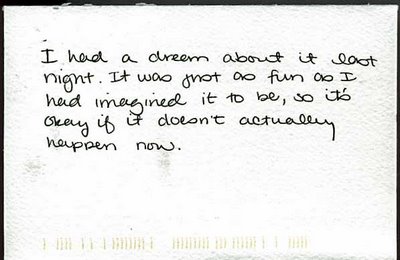 I had a dream about it last
night. It was just as fun as I
had imagined it to be, so it's
okay if it doesn't actually
happen now.